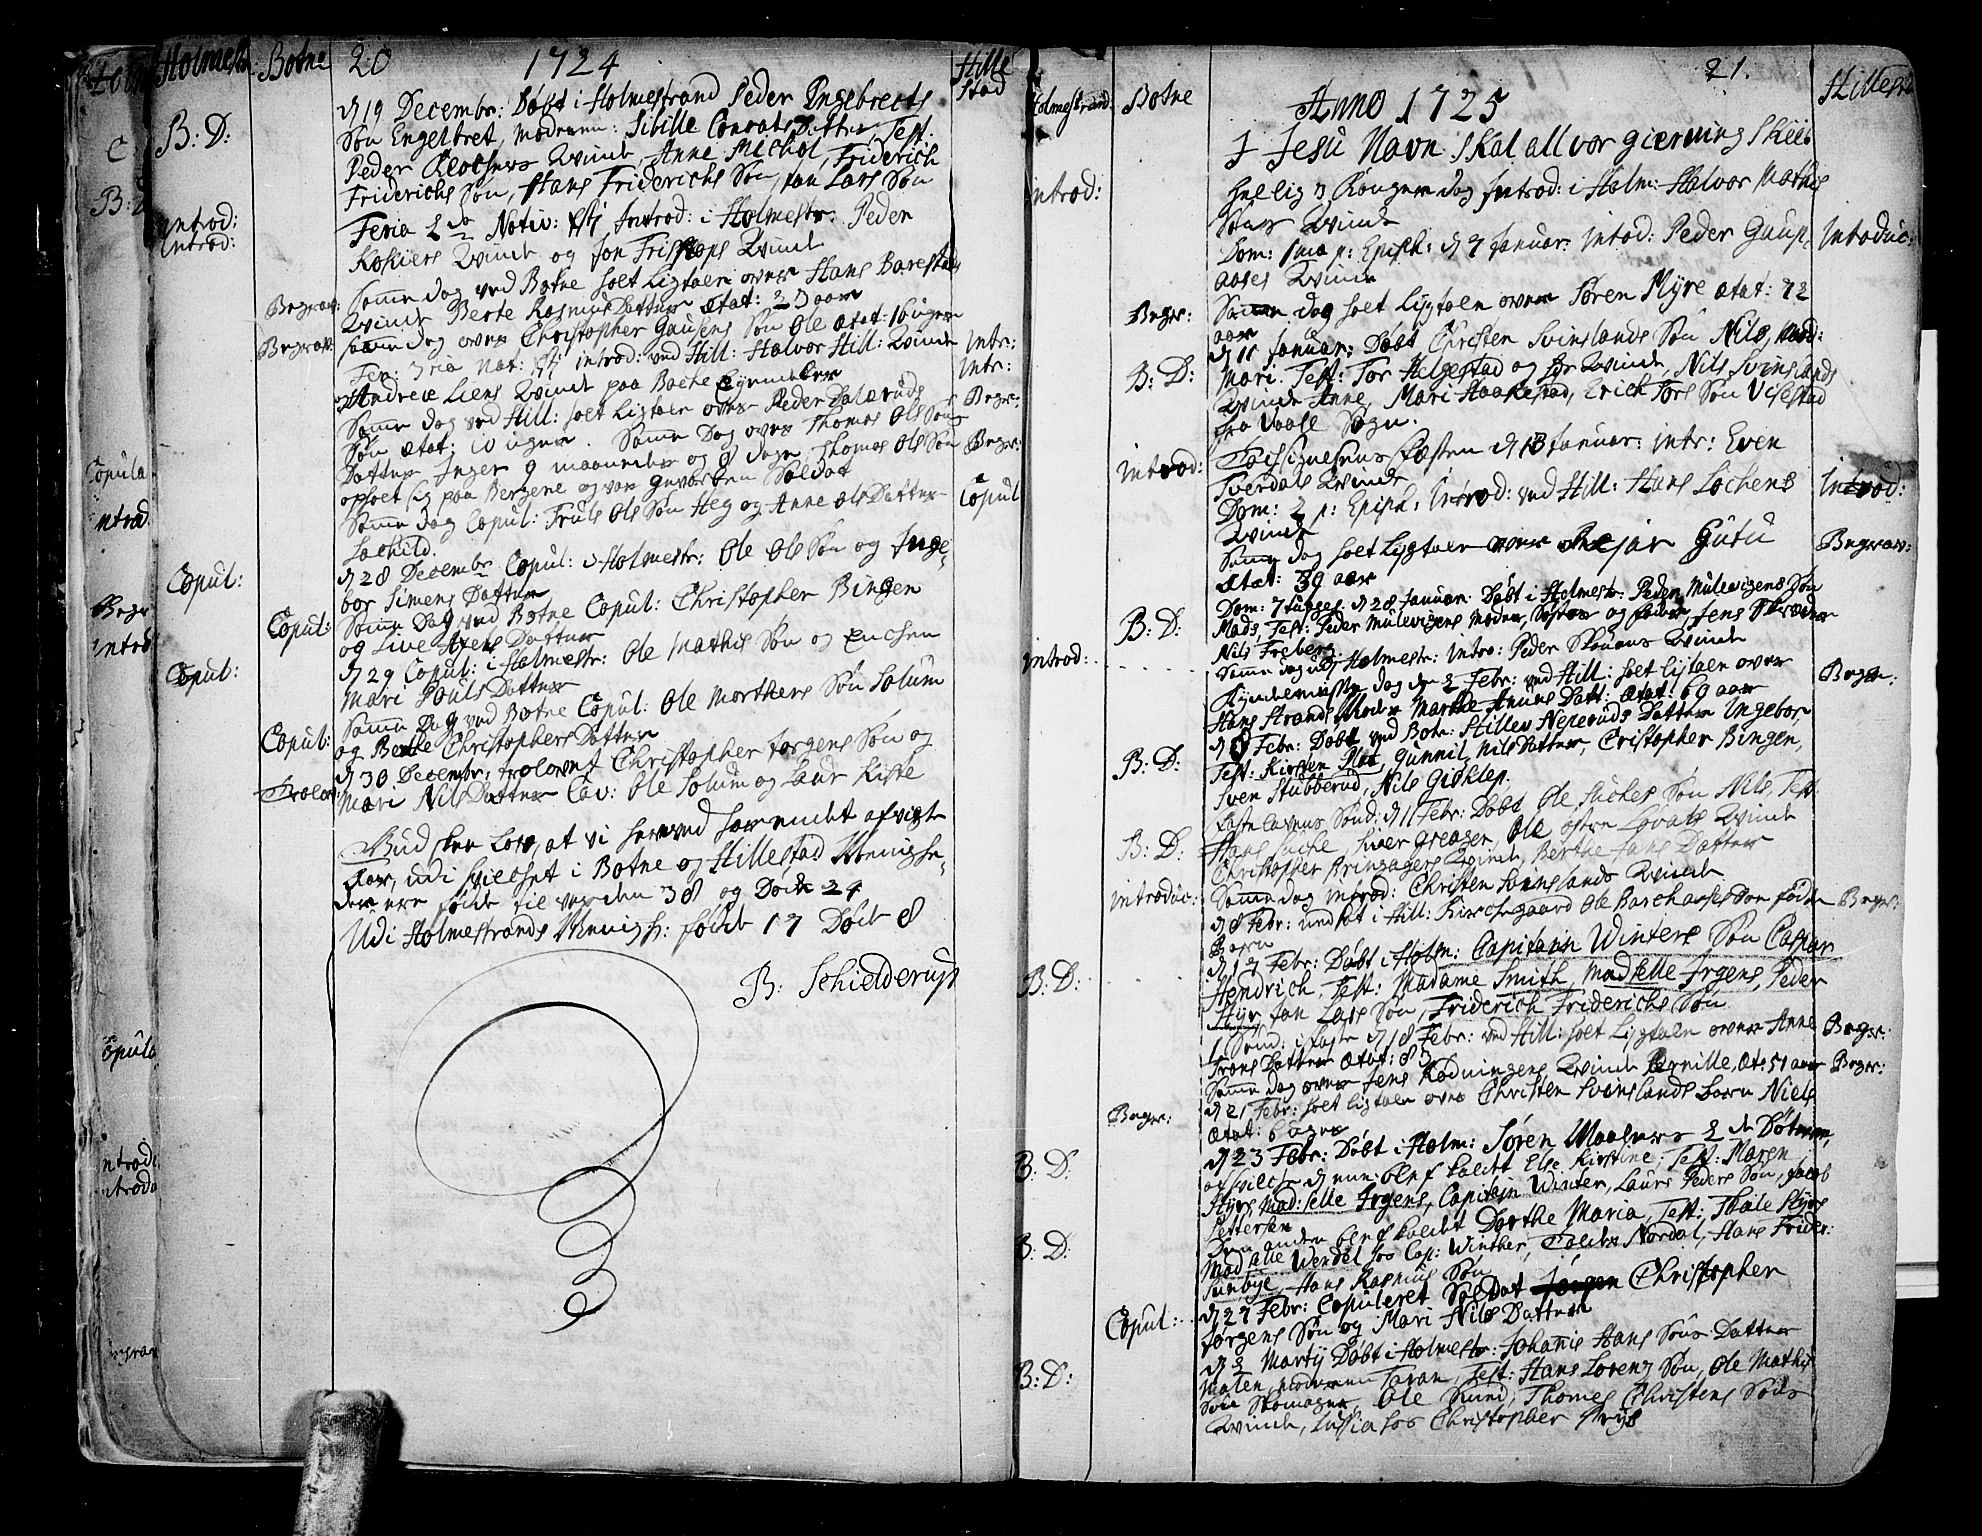 Holmestr Botne 20 1724 Hille
stad
B: D: d 19 Decembr: Døbt i Holmestrand Peder Engebrects
Søn Engelbret, moderen: Sibille Conrats Datter, Test.
Peder Klochers Qvinde, Anne Michol, Friderich
Friderichs Søn, Hans Friderichs Søn, Jan Lars Søn
introd: Feria 2da Nativ: Xti Introd: i Holmestr: Peder
Introd: Kokiers Qvinde og Jon Fristops Qvinde
Samme dag ved Botne holt Ligtalen over Hans Barestads
Begrav: Qvinde Berte Rasmus Datter ætat: 23 aar
Begrav: samme dag over Christopher Gausens Søn Ole ætat: 1 Uger
Fer: 3tia Nat: Xti introd: ved Hill: Halvor Hill: Qvinde Intr:
Andrew Liens Qvinde paa Botne Eyendeler Intr:
Samme dag ved Hill: holt Ligtalen over Peder Dalseruds Begr:
Søn ætat: 10 uger. Samme Dag over Thomas Ols Søns
Datter Inger 9 maaneder og 8 dage. Thomas Ols Søn Begr:
opholt sig paa Bergene og var geworben Soldat
Samme dag Copul: Truls Ols Søn Heg og Anne Ols Datter Copul
Lochild.
Copul: d 28 Decembr Copul: i Holmestr: Ole Ols Søn og Inge-
bor Simens Datter
Copul: Samme Dag ved Botne Copul: Christopher Bingen
og Live Axels Datter
Copul: d 29 Copul: i Holmestr: Ole Mathis Søn og Enchen
Mari Pouls Datter
Samme Dag ved Botne Copul: Ole Morthens Søn Solum
Copul: og Berthe Christophers Datter
d 30 Decembr: trolovet Christopher Jørgens Søn og
Trolov: Mari Nils Datter Cav: Ole Solum og Laur Kiste
Gud skee Lov, at vi herved har endet afvigte
Aar, udi hvilchet i Botne og Hillestad Menighe-
der ere fødde til verden 38 og Døde 24
Udi Holmestrands Menigh: fødde 17 Døde 8
B: Schielderup
Holmestrand: Botne 21. Hillestad
Anno 1725
I Jesu Navn skal all vor gierning skee
introd: hellig 3 Konger dag Introd: i Holm: Halvor Mathis
Søns Qvinde
Dom: 1ma p: Epiph: d 7 Januar: Introd: Peder Gaup- Introduc:
aases Qvinde
Begr: Samme dag holt Ligtalen over Søren Myre ætat: 72
aar
B: D: d 11 Januar: Døbt Christen Svinslands Søn Nils, Mod:
Mari. Test: Tor Helgestad og Qvinde, Nils Svinslands
Qvinde Anne, Mari Haakestad, Erich Tors Søn Visestad
fra Vaale Sogn.
introd: Tacksigelsens Festen d 13 Januar: intr: Even
Tverdals Qvinde
Dom: 2 p: Epiph: Introd: ved Hill: Hans Løchens Introd:
Qvinde
Samme dag holt Ligtalen over Rejar Gutu Begrav:
ætat: 39 aar
Dom: 7tuages: d 28 Januar: Døbt i Holmestr: Peder Mulevigens Søn
B: D: Mads, Test: Peder Mulevigens Moder, Søster og Jens Skreder
Nils Freberg.
introd: Samme dag udj Holmestr: Intro: Peder Skouens Qvinde
Kyndermisse dag den 2 Febr: ved Hill: holt Ligtalen over Begra:
Hans Strands Moder Marthe Amuns Datt: ætat: 69 aar
B: D: d 8 Febr: Døbt ved Botn: Hillev Neperuds Datter Ingebor
Test: Kirsten Plat, Gunnil Nils Datter, Cristopher Bingen,
Sven Stubberud, Nils Gioklep.
Faste Lavens Sønd: d 11 Febr: Døbt Ole Suches Søn Nils, Test
B: D: Hans Suche, Siver Greager, Ole østre Løvals Qvinde
Christopher Brinsagers Qvinde, Berthe Jans Datter
introduc: Samme dag introd: Christen Svinslands Qvinde
d 8 Febr: ved Hill: Kirchegaard Ole Barchaases Søn fødte Begr:
Barn
B: D: d 17 Febr: Døbt i Holm: Capitain Winters Søn Caspar
Hendrich, Test: Madame Smith, Madselle Irgens, Peder
Hyr, Jan Lars Søn, Friderich Friderichs Søn
1 Sønd: i faste d 18 Febr: ved Hill: holt Ligtalen over Anne Begr:
Frans Datter ætat: 83
Samme dag over Jens Rødningens Qvinde Pernille, æt: 51 aar Begr:
Begr: d 21 Febr: holt Ligtalen over Christen Svinslands barn Niels
ætat: 6 uger
B: D: d 23 Febr: Døbt i Holm: Søren Maalers 2 de Døttrene,
af hvilche d eene blef kaldt Else Kirstine: Test: Maren
Hyrs, Mad:selle Irgens, Capitejn Winter, Laurs Peders Søn, Jacob
Pettersen
B: D: Den anden blef kaldet Dorthe Maria, Test: Thale Hyrs
Mad:selle Werdel hos Cap: Winther, Nordal, Hans Frider:
Sunbye, Hans Rasmus Søn
d 27 Febr: Copuleret Soldat Jørgen Christopher
Copul: Jørgens Søn og Mari Nils Datter
B: D: d 2 Martij Døbt i Holmestr: Johanis Hans Søns Datter
Malen, moderen Saran, Test: Hans Lorenz Søn, Ole Mathis
Søn Skomager, Ole Sund, Thomes Christens Søns
Qvinde, Lussia hos Christopher